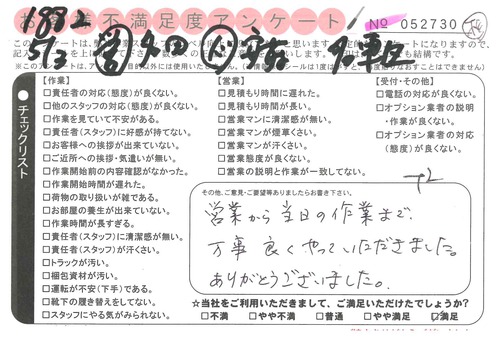 お客様不満足度アンケート
No 052730
チェックリスト
【作業】
□責任者の対応(態度)が良くない。
□他のスタッフの対応(態度)が良くない。
□作業を見ていて不安がある。
□責任者(スタッフ)に好感が持てない。
□お客様への挨拶が出来ていない。
□ご近所への挨拶・気遣いが無い。
□作業開始前の内容確認がなかった。
□作業開始時間が遅れた。
□荷物の取り扱いが雑である。
□お部屋の養生が出来ていない。
□作業時間が長すぎる。
□責任者(スタッフ)に清潔感が無い。
□責任者(スタッフ)が汗くさい。
□トラックが汚い。
□梱包資材が汚い。
□運転が不安(下手)である。
□靴下の履き替えをしてない。
□スタッフにやる気がみられない。
【営業】
□見積もり時間に遅れた。
□見積もり時間が長い。
□営業マンに清潔感が無い。
□営業マンが煙草くさい。
□営業マンが汗くさい。
□営業態度が良くない。
□営業の説明と作業が一致してない。
【受付・その他】
□電話の対応が良くない。
□オプション業者の説明
・作業が良くない。
□オプション業者の対応
(態度)が良くない。
その他、ご意見・ご要望等ありましたらお書き下さい。
営業から当日の作業まで、
万事良くやっていただきました。
ありがとうございました。
☆当社をご利用いただきまして、ご満足いただけたでしょうか？
□不満 □やや不満 □普通 □やや満足 ☑満足